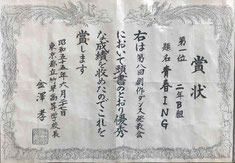 賞状
第一位 二年B組
題名 青春ING
右は第八回創作ダンス発表会
において頭書のとおり優秀
な成績を収めたのでこれを
賞します
昭和五十五年六月二十七日
東京都立竹早高等学校長
金澤孝